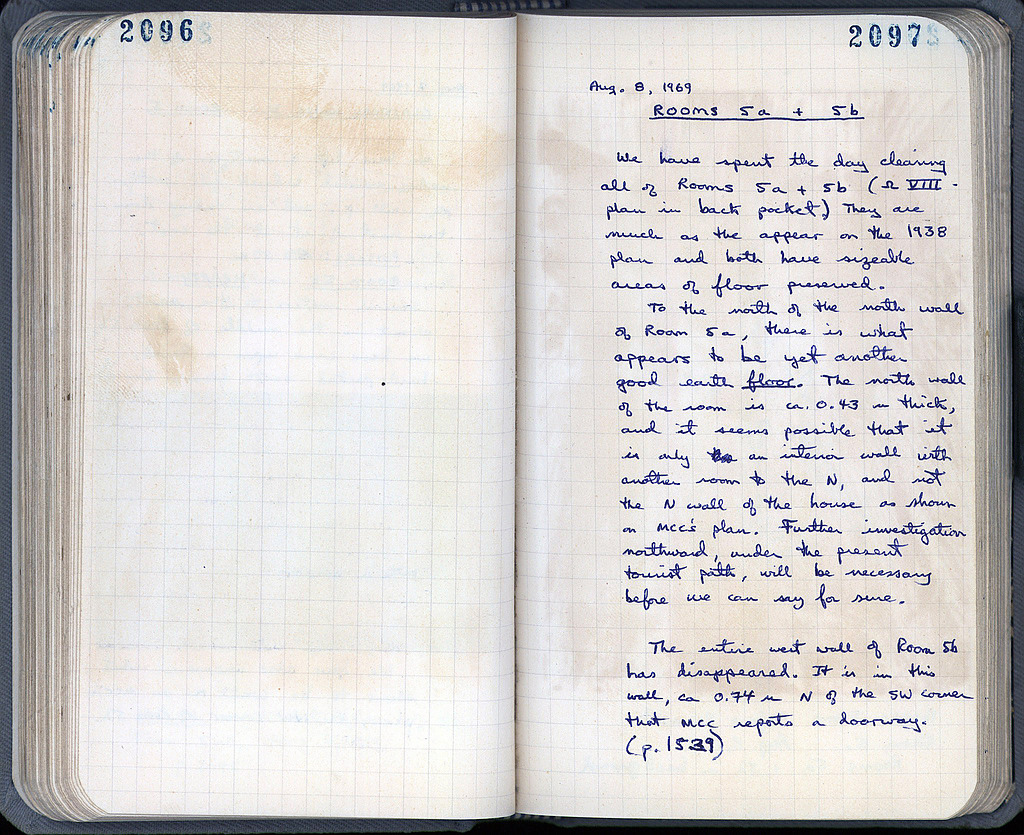 2096
2097
Aug. 8, 1969
Rooms 5a + 5b
We have spent the day cleaning
all of Rooms 5a + 5b (Ω VIII -
plan in back pocket.) They are
much as the appear on the 1938
plan and both have sizeable
areas of floor preserved.
To the north of the north wall
of Room 5a, there is what
appears to be yet another
good earth floor. The north wall
of the room is ca. 0.43 m thick,
and it seems possible that it
is only an interior wall with
another room to the N, and not
the N wall of the house as shown
on MCC's plan. Further investigation
northward, under the present
tourist path, will be necessary
before we can say for sure.
The entire west wall of Room 5b
has disappeared. It is in this
wall, ca 0.74 m N of the SW corner
that MCC reports a doorway.
(p. 1539)